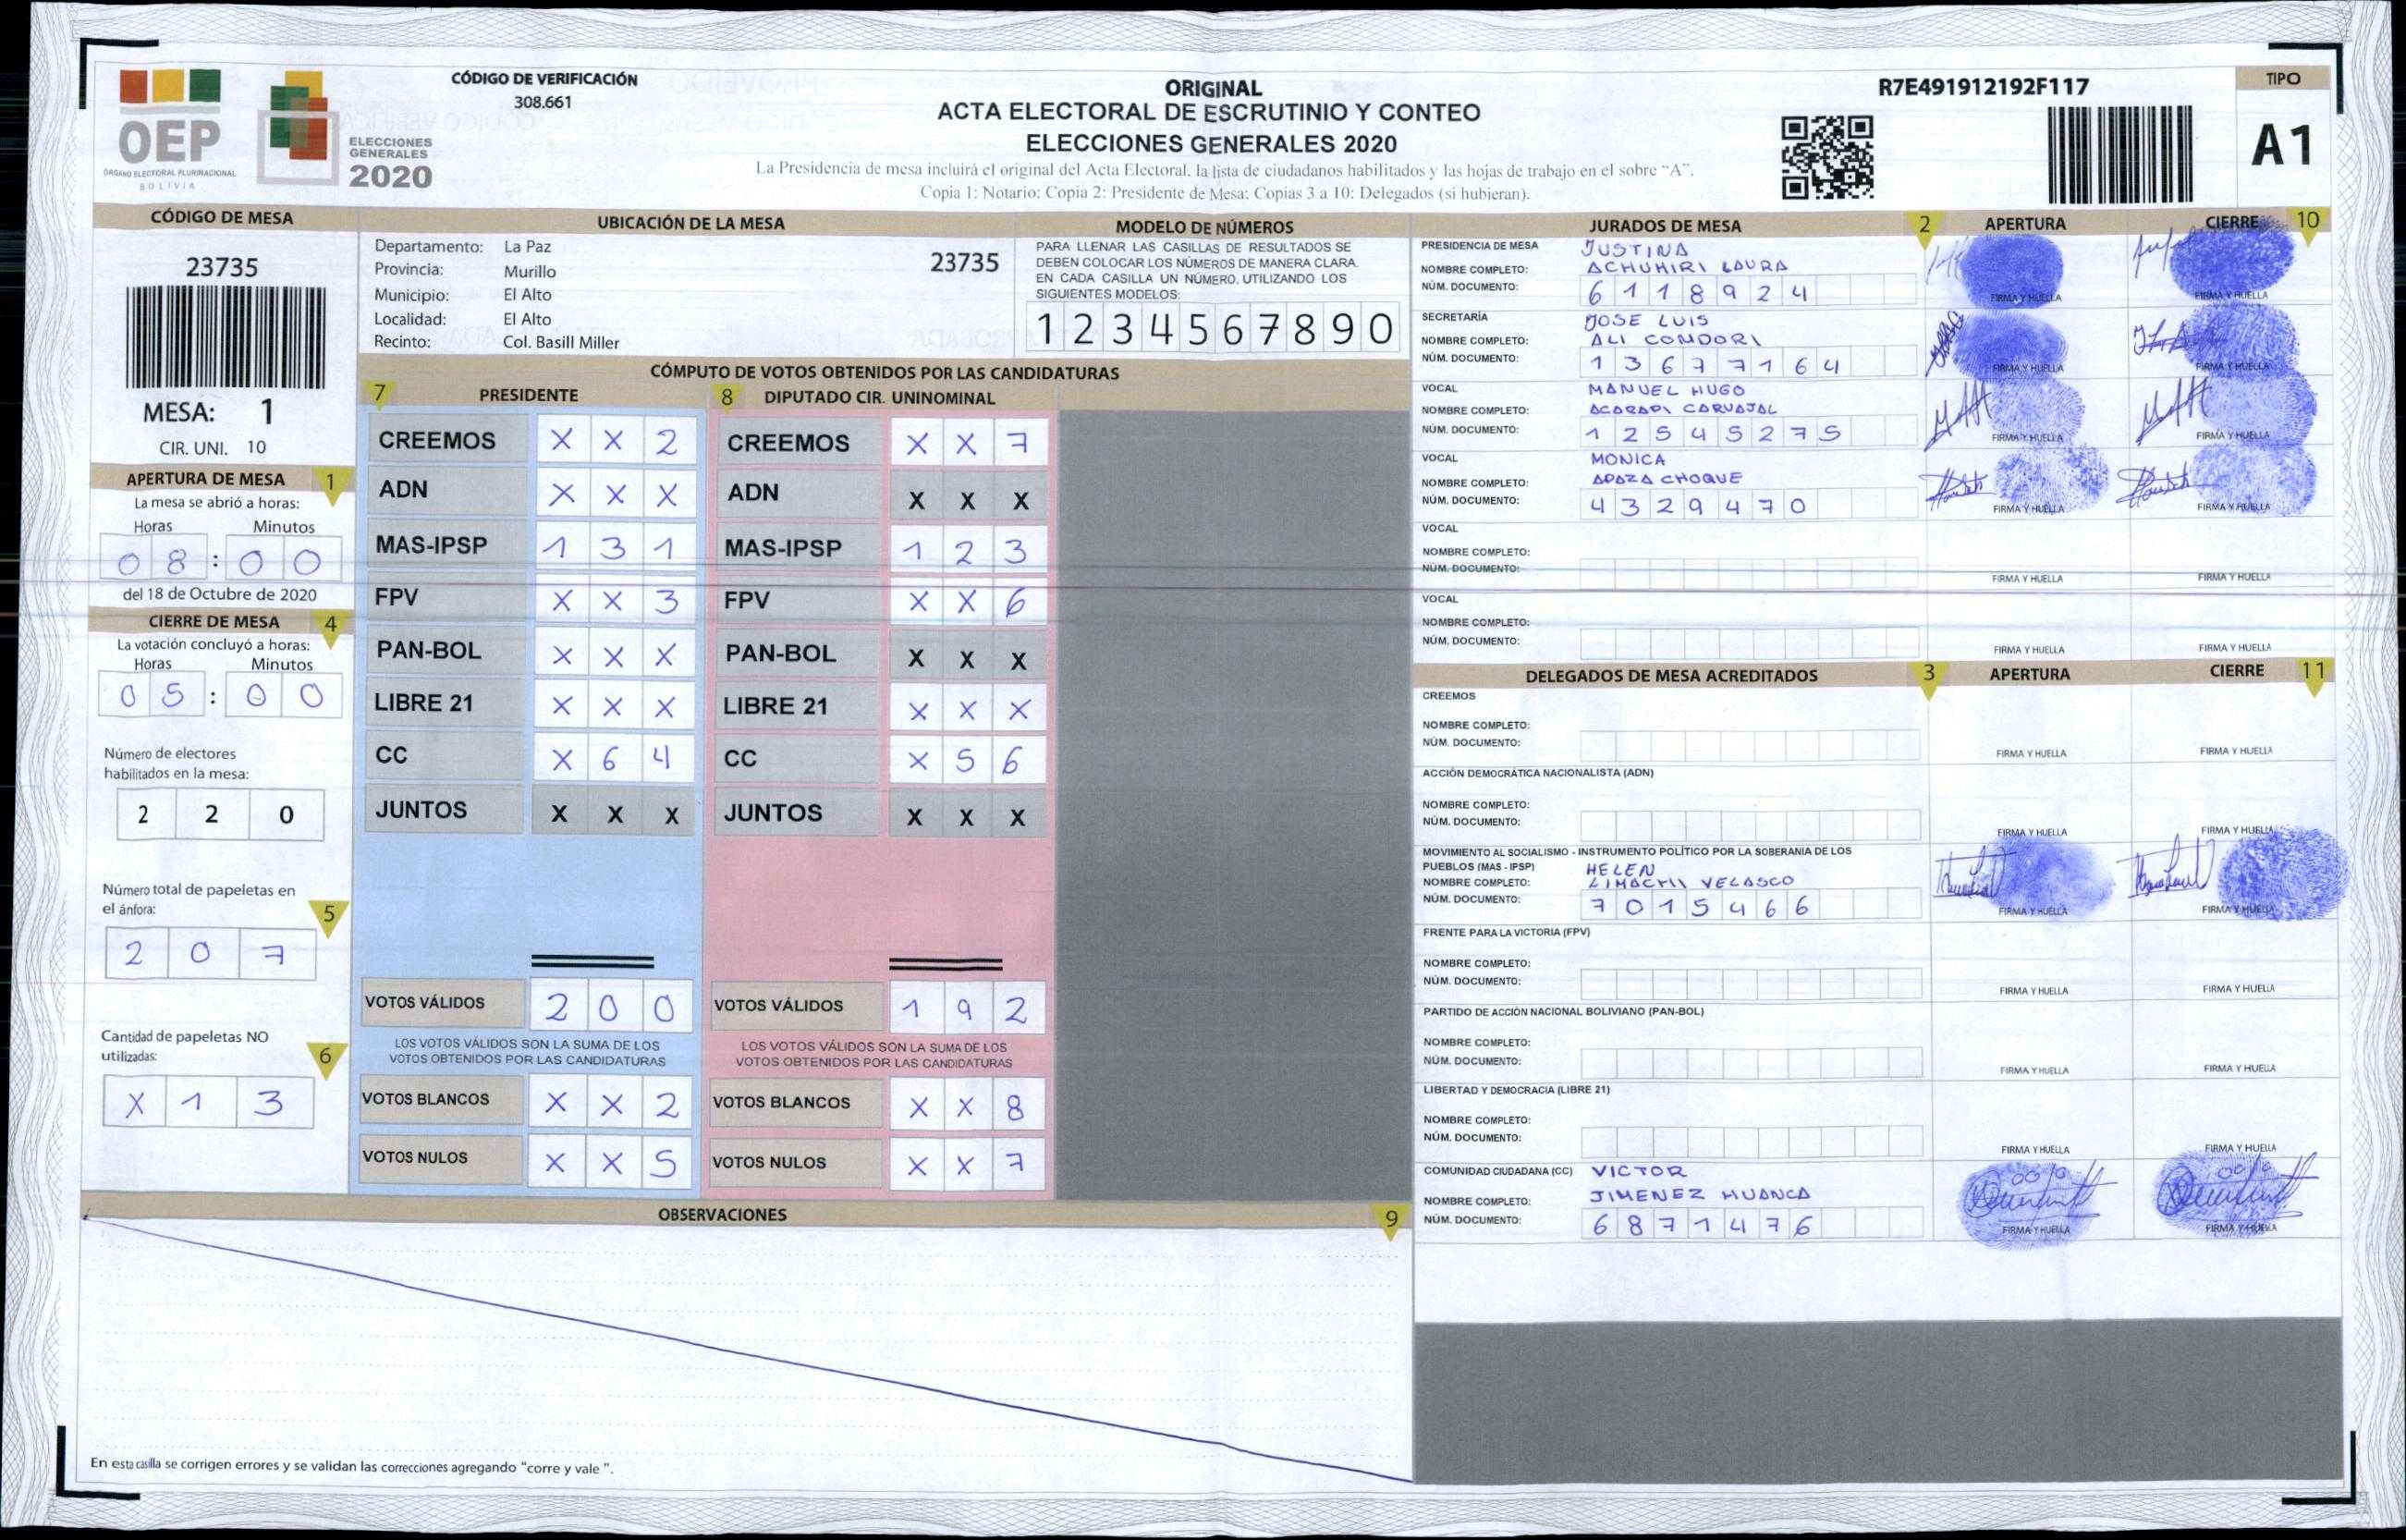 OEP
ÓRGANO ELECTORAL PLURINACIONAL
BOLIVIA
ELECCIONES
GENERALES
2020
CÓDIGO DE VERIFICACIÓN
308.661
ORIGINAL
ACTA ELECTORAL DE ESCRUTINIO Y CONTEO
ELECCIONES GENERALES 2020
La Presidencia de mesa incluirá el original del Acta Electoral, la lista de ciudadanos habilitados y las hojas de trabajo en el sobre "A".
Copia 1: Notario; Copia 2: Presidente de Mesa; Copias 3 a 10: Delegados (si hubieran).
R7E491912192F117
TIPO
A1
CÓDIGO DE MESA
23735
MESA: 1
CIR. UNI. 10
APERTURA DE MESA 1
La mesa se abrió a horas:
Horas Minutos
0 8 : 0 0
del 18 de Octubre de 2020
CIERRE DE MESA 4
La votación concluyó a horas:
Horas Minutos
0 5 : 0 0
Número de electores
habilitados en la mesa:
2 2 0
Número total de papeletas en
el ánfora: 5
2 0 7
Cantidad de papeletas NO
utilizadas: 6
X 1 3
UBICACIÓN DE LA MESA
Departamento: La Paz
23735
Provincia: Murillo
Municipio: El Alto
Localidad: El Alto
Recinto: Col. Basill Miller
MODELO DE NÚMEROS
PARA LLENAR LAS CASILLAS DE RESULTADOS SE
DEBEN COLOCAR LOS NÚMEROS DE MANERA CLARA.
EN CADA CASILLA UN NÚMERO, UTILIZANDO LOS
SIGUIENTES MODELOS:
1 2 3 4 5 6 7 8 9 0
CÓMPUTO DE VOTOS OBTENIDOS POR LAS CANDIDATURAS
7 PRESIDENTE
CREEMOS X X 2
ADN X X X
MAS-IPSP 1 3 1
FPV X X 3
PAN-BOL X X X
LIBRE 21 X X X
CC X 6 4
JUNTOS X X X
VOTOS VÁLIDOS 2 0 0
LOS VOTOS VÁLIDOS SON LA SUMA DE LOS
VOTOS OBTENIDOS POR LAS CANDIDATURAS
VOTOS BLANCOS X X 2
VOTOS NULOS X X 5
8 DIPUTADO CIR. UNINOMINAL
CREEMOS X X 7
ADN X X X
MAS-IPSP 1 2 3
FPV X X 6
PAN-BOL X X X
LIBRE 21 X X X
CC X 5 6
JUNTOS X X X
VOTOS VÁLIDOS 1 9 2
LOS VOTOS VÁLIDOS SON LA SUMA DE LOS
VOTOS OBTENIDOS POR LAS CANDIDATURAS
VOTOS BLANCOS X X 8
VOTOS NULOS X X 7
OBSERVACIONES 9
En esta casilla se corrigen errores y se validan las correcciones agregando "corre y vale ".
JURADOS DE MESA 2 APERTURA CIERRE 10
PRESIDENCIA DE MESA JUSTINA
NOMBRE COMPLETO: ACHUHIRI LAURA
NÚM. DOCUMENTO: 6 1 1 8 9 2 4
FIRMA Y HUELLA FIRMA Y HUELLA
SECRETARÍA JOSE LUIS
NOMBRE COMPLETO: ALI CONDORI
NÚM. DOCUMENTO: 1 3 6 7 7 1 6 4
FIRMA Y HUELLA FIRMA Y HUELLA
VOCAL MANUEL HUGO
NOMBRE COMPLETO: ACARAPI CARVAJAL
NÚM. DOCUMENTO: 1 2 5 4 5 2 7 5
FIRMA Y HUELLA FIRMA Y HUELLA
VOCAL MONICA
NOMBRE COMPLETO: APAZA CHOQUE
NÚM. DOCUMENTO: 4 3 2 9 4 7 0
FIRMA Y HUELLA FIRMA Y HUELLA
VOCAL
NOMBRE COMPLETO:
NÚM. DOCUMENTO:
FIRMA Y HUELLA FIRMA Y HUELLA
VOCAL
NOMBRE COMPLETO:
NÚM. DOCUMENTO:
FIRMA Y HUELLA FIRMA Y HUELLA
DELEGADOS DE MESA ACREDITADOS 3 APERTURA CIERRE 11
CREEMOS
NOMBRE COMPLETO:
NÚM. DOCUMENTO:
FIRMA Y HUELLA FIRMA Y HUELLA
ACCIÓN DEMOCRÁTICA NACIONALISTA (ADN)
NOMBRE COMPLETO:
NÚM. DOCUMENTO:
FIRMA Y HUELLA FIRMA Y HUELLA
MOVIMIENTO AL SOCIALISMO - INSTRUMENTO POLÍTICO POR LA SOBERANIA DE LOS
PUEBLOS (MAS - IPSP) HELEN
NOMBRE COMPLETO: LIMACHI VELASCO
NÚM. DOCUMENTO: 7 0 1 5 4 6 6
FIRMA Y HUELLA FIRMA Y HUELLA
FRENTE PARA LA VICTORIA (FPV)
NOMBRE COMPLETO:
NÚM. DOCUMENTO:
FIRMA Y HUELLA FIRMA Y HUELLA
PARTIDO DE ACCIÓN NACIONAL BOLIVIANO (PAN-BOL)
NOMBRE COMPLETO:
NÚM. DOCUMENTO:
FIRMA Y HUELLA FIRMA Y HUELLA
LIBERTAD Y DEMOCRACIA (LIBRE 21)
NOMBRE COMPLETO:
NÚM. DOCUMENTO:
FIRMA Y HUELLA FIRMA Y HUELLA
COMUNIDAD CIUDADANA (CC) VICTOR
NOMBRE COMPLETO: JIMENEZ HUANCA
NÚM. DOCUMENTO: 6 8 7 1 4 7 6
FIRMA Y HUELLA FIRMA Y HUELLA